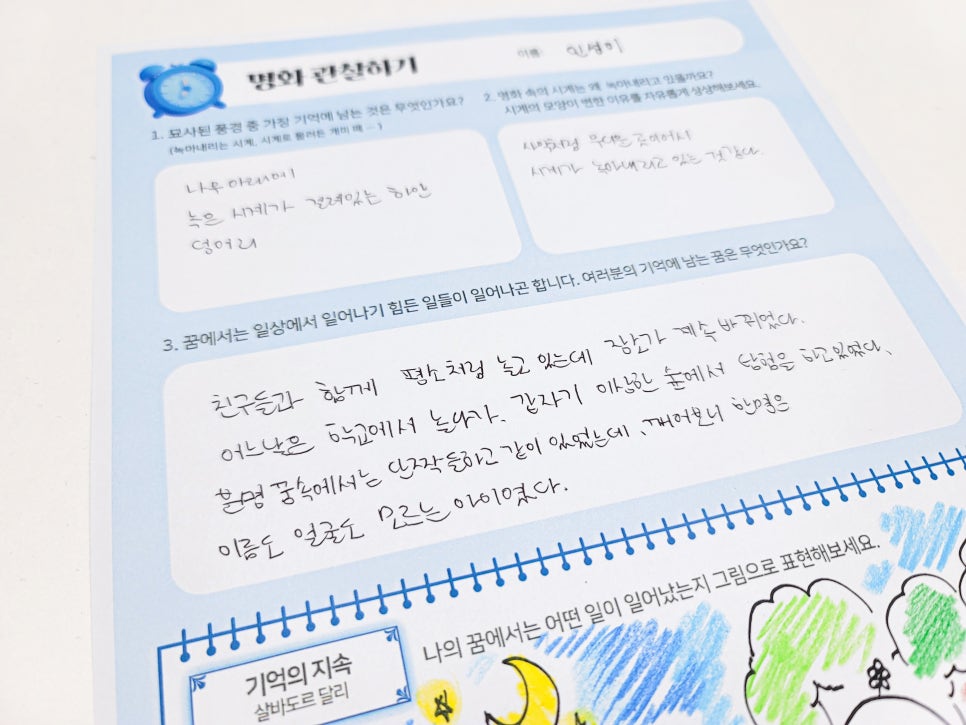 명화 관찰하기
이름
1. 묘사된 풍경 중 가장 기억에 남는 것은 무엇인가요?
(녹아내리는 시계, 시계로 몰려든 개미 떼 … )
나무 아래에
녹은 시계가 걸려있는 하얀
덩어리
2. 명화 속의 시계는 왜 녹아내리고 있을까요?
시계의 모양이 변한 이유를 자유롭게 상상해보세요.
사막처럼 무더운 곳이어서
시계가 녹아내리고 있는 것 같다.
3. 꿈에서는 일상에서 일어나기 힘든 일들이 일어나곤 합니다. 여러분의 기억에 남는 꿈은 무엇인가요?
친구들과 함께 평소처럼 놀고 있는데 장소가 계속 바뀌었다.
어느날은 학교에서 놀다가. 갑자기 이상한 숲에서 탐험을 하고있었다.
분명 꿈속에서는 단짝들하고 같이 있었는데, 깨어보니 한명은
이름도 얼굴도 모르는 아이였다.
나의 꿈에서는 어떤 일이 일어났는지 그림으로 표현해보세요.
기억의 지속
살바도르 달리